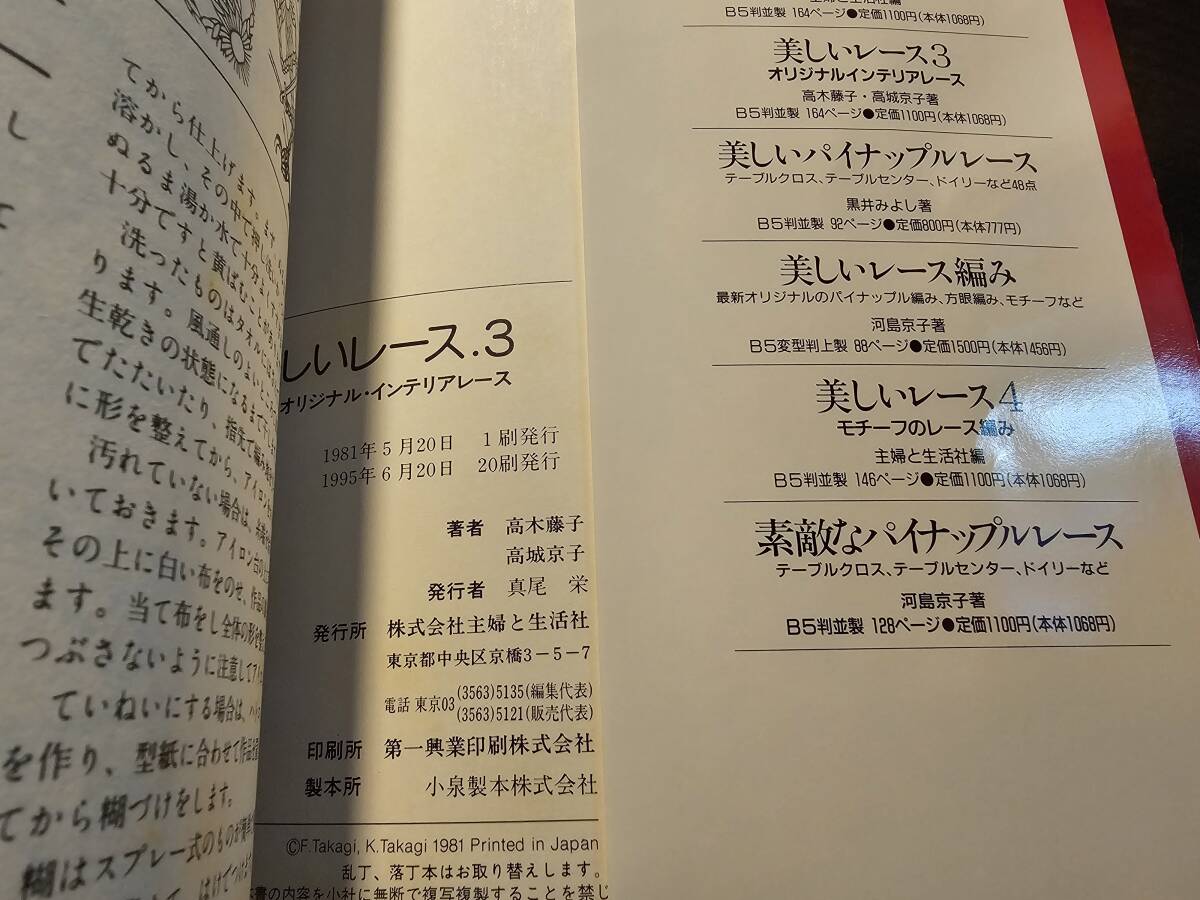 てから仕上げます。ます
溶かし、その中で押し
ぬるま湯か水で十分
十分ですと黄ばむことがあ
洗ったものはタオルに
ります。風通しのよいところ
生乾きの状態になるまで
てたたいたり、指先で編み
に形を整えてから、アイロン
汚れていない場合は、
いておきます。アイロン台の上
その上に白い布をのせ、作品
ます。当て布をし全体の形を
つぶさないように注意してアイ
ていねいにする場合は、
を作り、型紙に合わせて作品を
てから糊づけをします。
糊はスプレー式のものが
しいレース.3
オリジナル・インテリアレース
1981年5月20日 1刷発行
1995年6月20日 20刷発行
著者 高木藤子
高城京子
発行者 真尾 栄
発行所 株式会社主婦と生活社
東京都中央区京橋3-5-7
電話 東京03(3563)5135(編集代表)
(3563)5121(販売代表)
印刷所 第一興業印刷株式会社
製本所 小泉製本株式会社
©F.Takagi, K.Takagi 1981 Printed in Japan
乱丁、落丁本はお取り替えします。
書の内容を小社に無断で複写複製することを禁じ
主婦と生活社編
B5判並製 164ページ●定価1100円(本体1068円)
美しいレース3
オリジナルインテリアレース
高木藤子・高城京子著
B5判並製 164ページ●定価1100円(本体1068円)
美しいパイナップルレース
テーブルクロス、テーブルセンター、ドイリーなど48点
黒井みよし著
B5判並製 92ページ●定価800円(本体777円)
美しいレース編み
最新オリジナルのパイナップル編み、方眼編み、モチーフなど
河島京子著
B5変型判上製 88ページ●定価1500円(本体1456円)
美しいレース4
モチーフのレース編み
主婦と生活社編
B5判並製 146ページ●定価1100円(本体1068円)
素敵なパイナップルレース
テーブルクロス、テーブルセンター、ドイリーなど
河島京子著
B5判並製 128ページ●定価1100円(本体1068円)